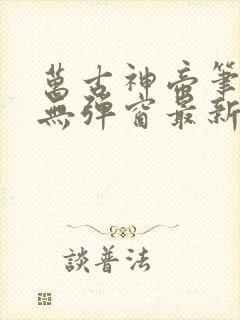 萬古神帝筆
無彈窗最新
談普法